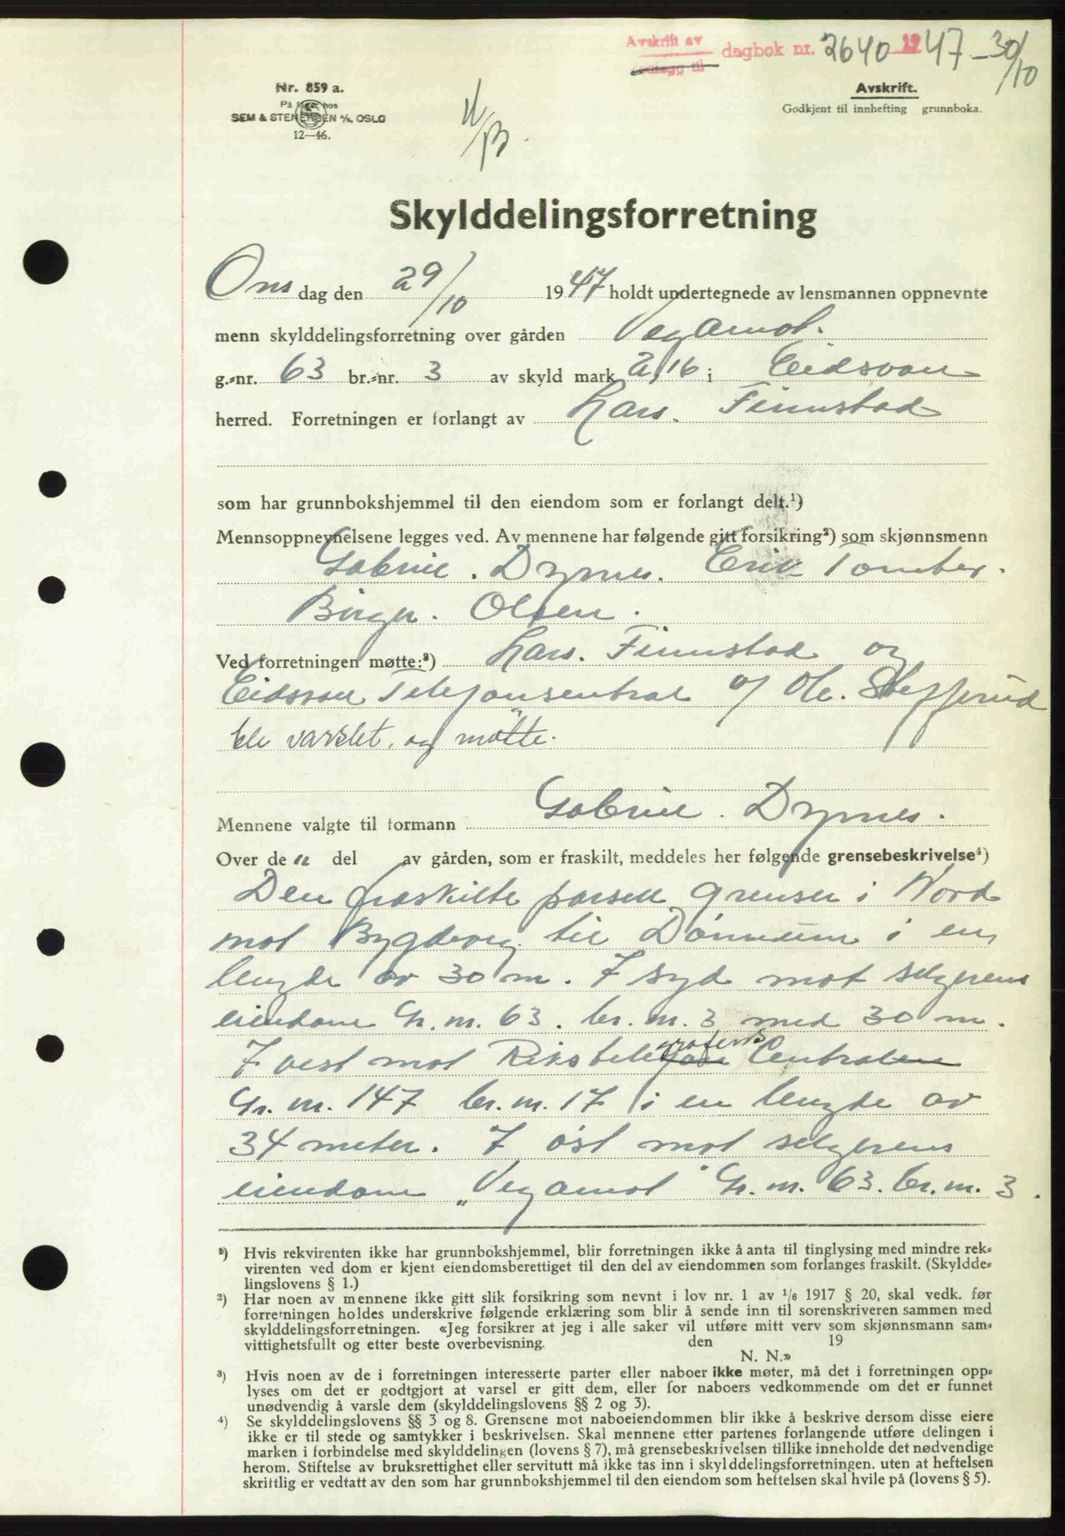 Avskrift av dagbok nr. 2640 1947 - 30/10
Nr. 859 a.
På lager hos
SEM & STENERSEN A/S, OSLO
12—46.
Avskrift.
Godkjent til innhefting grunnboka.
Skylddelingsforretning
Ons dag den 29/10 1947 holdt undertegnede av lensmannen oppnevnte
menn skylddelingsforretning over gården Vegamot.
g.-nr. 63 br.-nr. 3 av skyld mark 2,16 i Eidsvoll
herred. Forretningen er forlangt av Lars. Finnstad
som har grunnbokshjemmel til den eiendom som er forlangt delt.¹)
Mennsoppnevnelsene legges ved. Av mennene har følgende gitt forsikring²) som skjønnsmenn
Gabriel. Dyrnes. Erik Tomter.
Birger. Olsen.
Ved forretningen møtte:³) Lars. Finnstad og
Eidsvoll Telefonsentral v/ Ole.
ble varslet, og møtte.
Mennene valgte til formann Gabriel. Dyrnes.
Over de n del av gården, som er fraskilt, meddeles her følgende grensebeskrivelse⁴)
Den fraskilte parsell grenser i Nord
mot Bygdeveg til Dønnum i en
lengde av 30 m. I syd mot selgerens
eiendom Gr. nr. 63. br. nr. 3 med 30 m.
I vest mot Rikstelegrafens Centralen
Gr. nr. 147 br. nr. 17 i en lengde av
34 meter. I øst mot selgerens
eiendom „Vegamot" Gr. nr. 63. br. nr. 3.
¹) Hvis rekvirenten ikke har grunnbokshjemmel, blir forretningen ikke å anta til tinglysing med mindre rek-
virenten ved dom er kjent eiendomsberettiget til den del av eiendommen som forlanges fraskilt. (Skyldde-
lingslovens § 1.)
²) Har noen av mennene ikke gitt slik forsikring som nevnt i lov nr. 1 av 1/6 1917 § 20, skal vedk. før
forretningen holdes underskrive følgende erklæring som blir å sende inn til sorenskriveren sammen med
skylddelingsforretningen. «Jeg forsikrer at jeg i alle saker vil utføre mitt verv som skjønnsmann sam-
vittighetsfullt og etter beste overbevisning. den 19
N. N.»
³) Hvis noen av de i forretningen interesserte parter eller naboer ikke møter, må det i forretningen opp-
lyses om det er godtgjort at varsel er gitt dem, eller for naboers vedkommende om det er funnet
unødvendig å varsle dem (skylddelingslovens §§ 2 og 3).
⁴) Se skylddelingslovens §§ 3 og 8. Grensene mot naboeiendommen blir ikke å beskrive dersom disse eiere
ikke er til stede og samtykker i beskrivelsen. Skal mennene etter partenes forlangende utføre delingen i
marken i forbindelse med skylddelingen (lovens § 7), må grensebeskrivelsen tillike inneholde det nødvendige
herom. Stiftelse av bruksrettighet eller servitutt må ikke tas inn i skylddelingsforretningen. uten at heftelsen
skriftlig er vedtatt av den som har grunnbokshjemmel til den eiendom som heftelsen skal hvile på (lovens § 5).